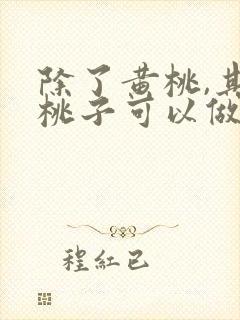 除了黄桃,其
桃子可以做
程紅已